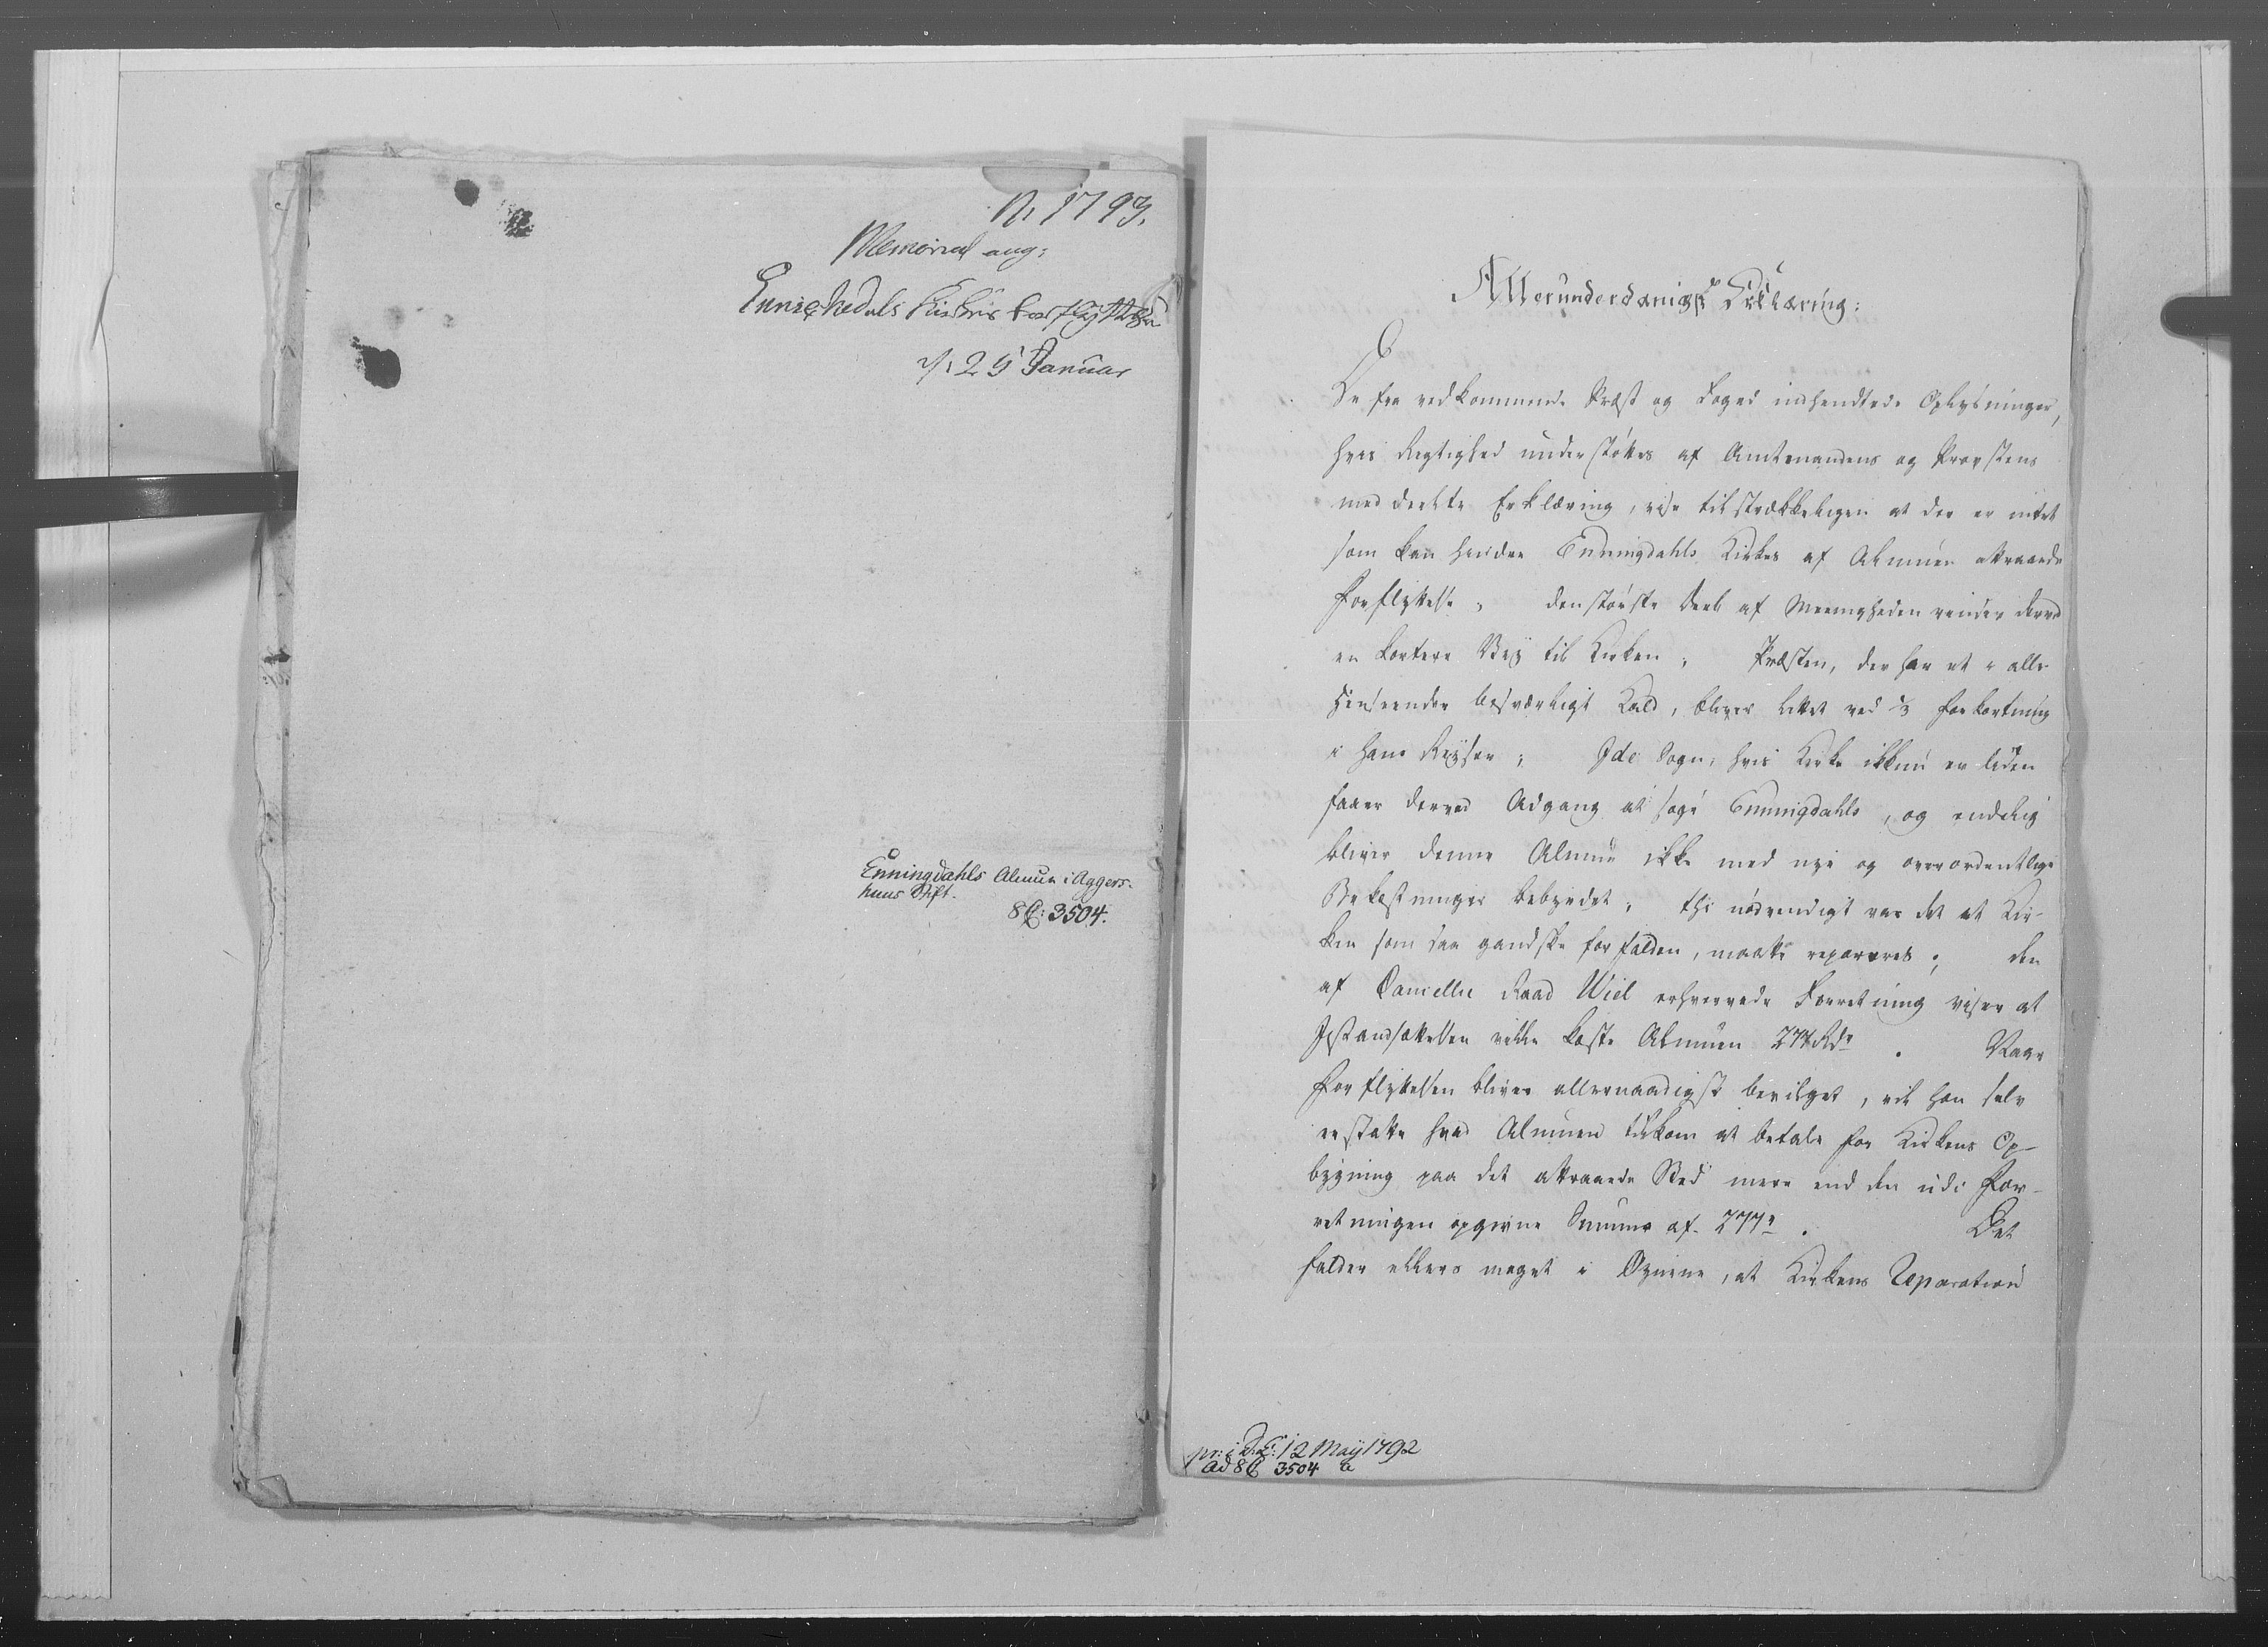 N: 1793.
Memorial ang:
Kirkes forflyttelse
d: 25 Januar
Enningdahls Almue i Aggers-
huus Stift.
8 C: 3504.
Allerunderdanigst Erklæring:
De fra vedkommende Præst og Foged indhendtede Oplysninger,
hvis Rigtighed understøttes af Amtmandens og Provstens
meddeelte Erklæring, vise tilstrækkeligen at der er intet
som kan hindre Enningdahls Kirkes af Almuen attraaede
Forflyttelse; den største Deel af Meenigheden vinder derved
en kortere Vej til Kirken; Præsten, der har et i alle
Henseender besværligt Kald, bliver lettet ved 1/3 Forkortning
i hans Rejser; Ide Sogn, hvis Kirke ikkun er liden
faaer derved Adgang at søge Enningdahls, og endelig
bliver denne Almue ikke med nye og overordentlige
Bekostninger bebyrdet; thi nødvendigt var det at Kir-
ken som saa gandske forfalden, maatte repareres; den
af Cancellie Raad Wiel erhvervede Forretning viser at
Istandsættelsen ville koste Almuen 277 Rdr. Naar
Forflyttelsen bliver allernaadigst bevilget, vil han selv
erstatte hvad Almuen tilkom at betale for Kirkens Op-
bygning paa det attraaede Sted mere end den udi For-
retningen opgivne Summa af 277 r. Det
falder ellers meget i Øynene, at Kirkens Reparation
pr: i D: C: 12 Maij 1792
ad 8 C 3504 a